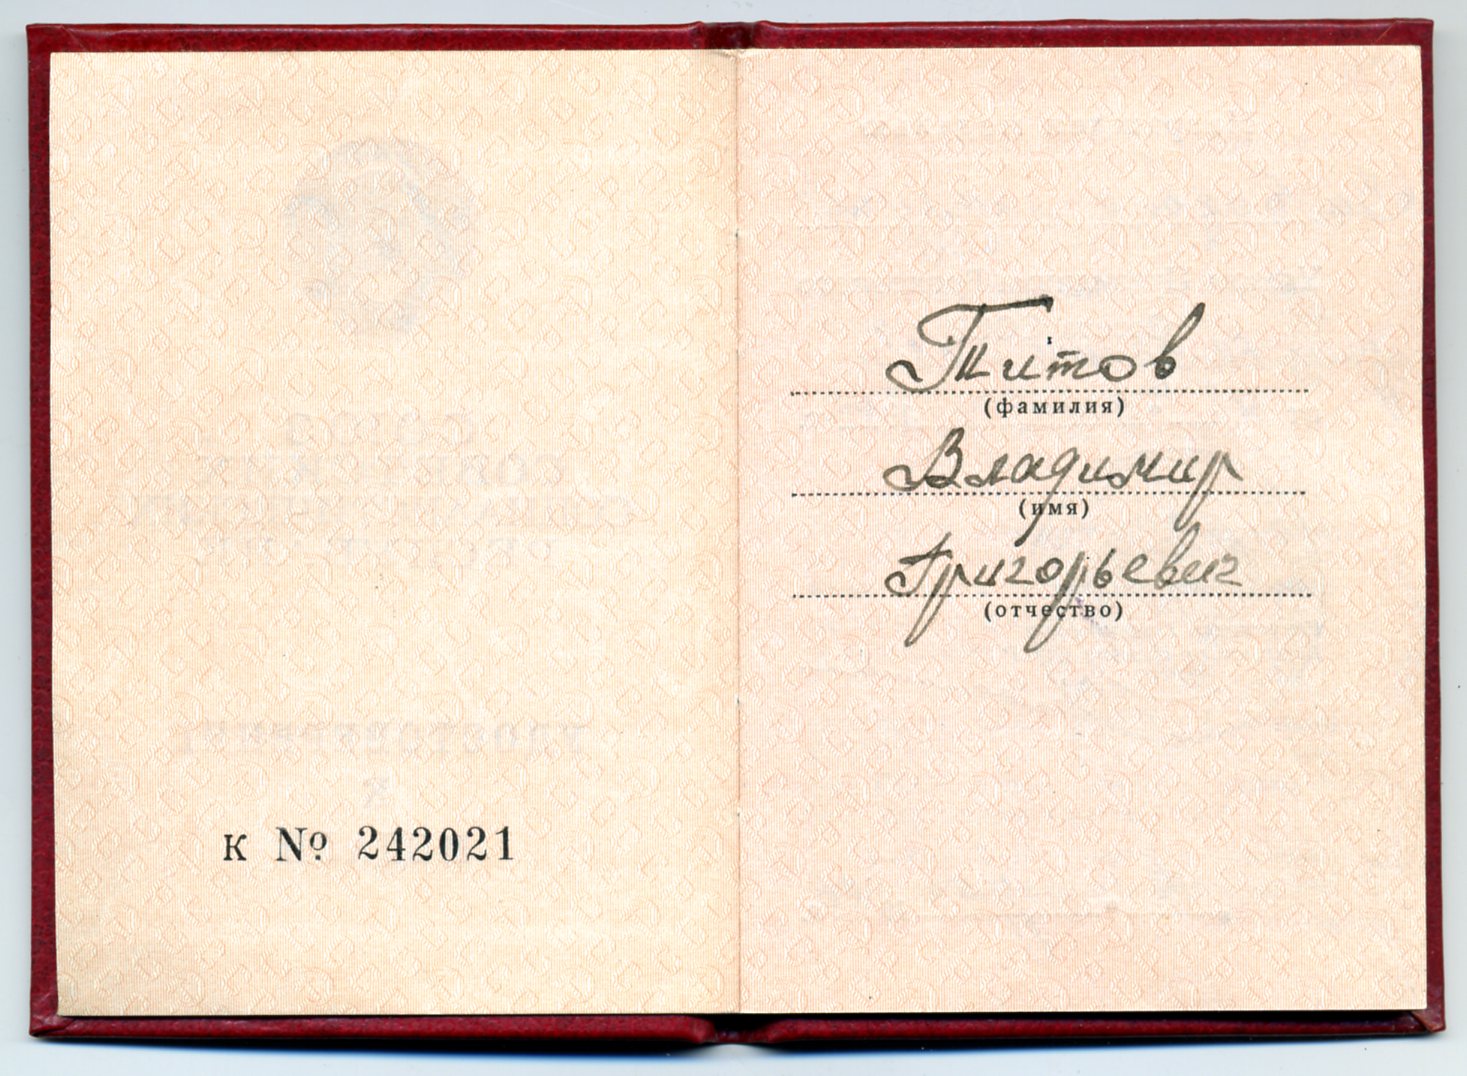 К № 242021
Титов
(фамилия)
Владимир
(имя)
Григорьевич
(отчество)